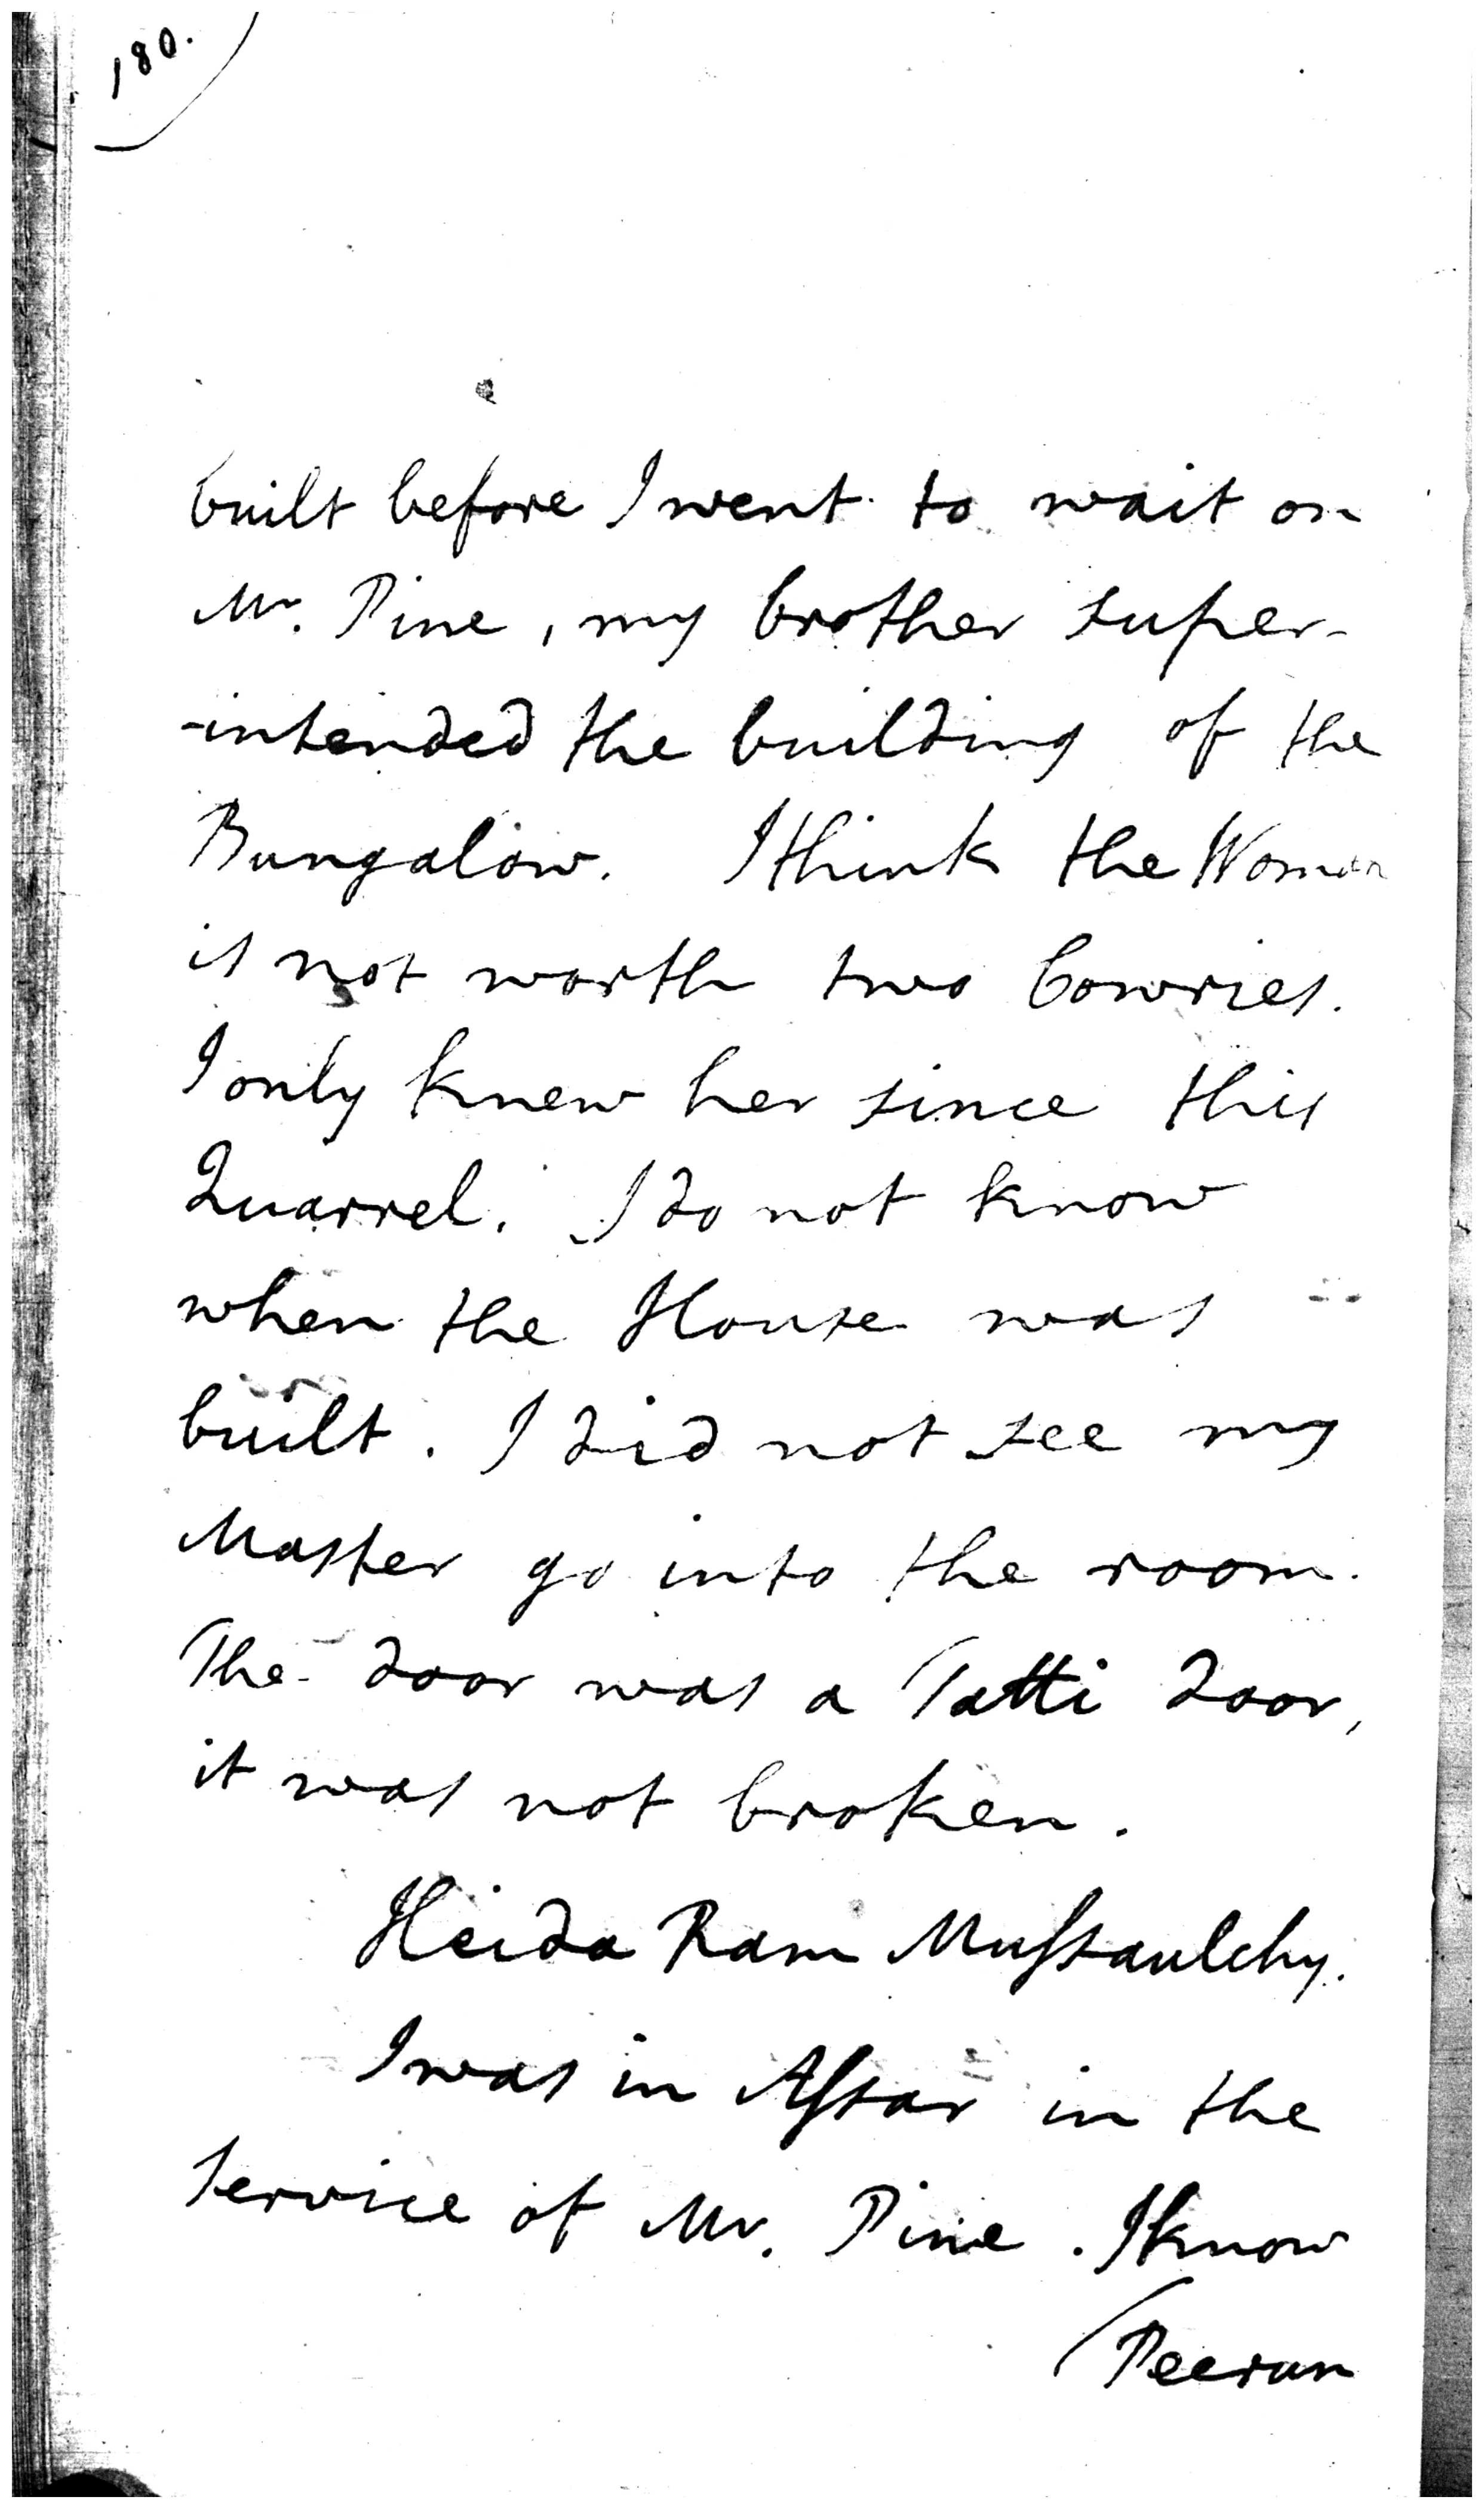 180.
built before I went to wait on
Mr. Pine, my brother super-
-intended the building of the
Bungalow. I think the Woman
is not worth two Cowries.
I only knew her since this
Quarrel. I do not know
when the House was
built. I did not see my
Master go into the room.
The door was a Tatti door,
it was not broken.
Heida Ram Mussaulchy.
I was in Assar in the
service of Mr. Pine. I know
Peerun